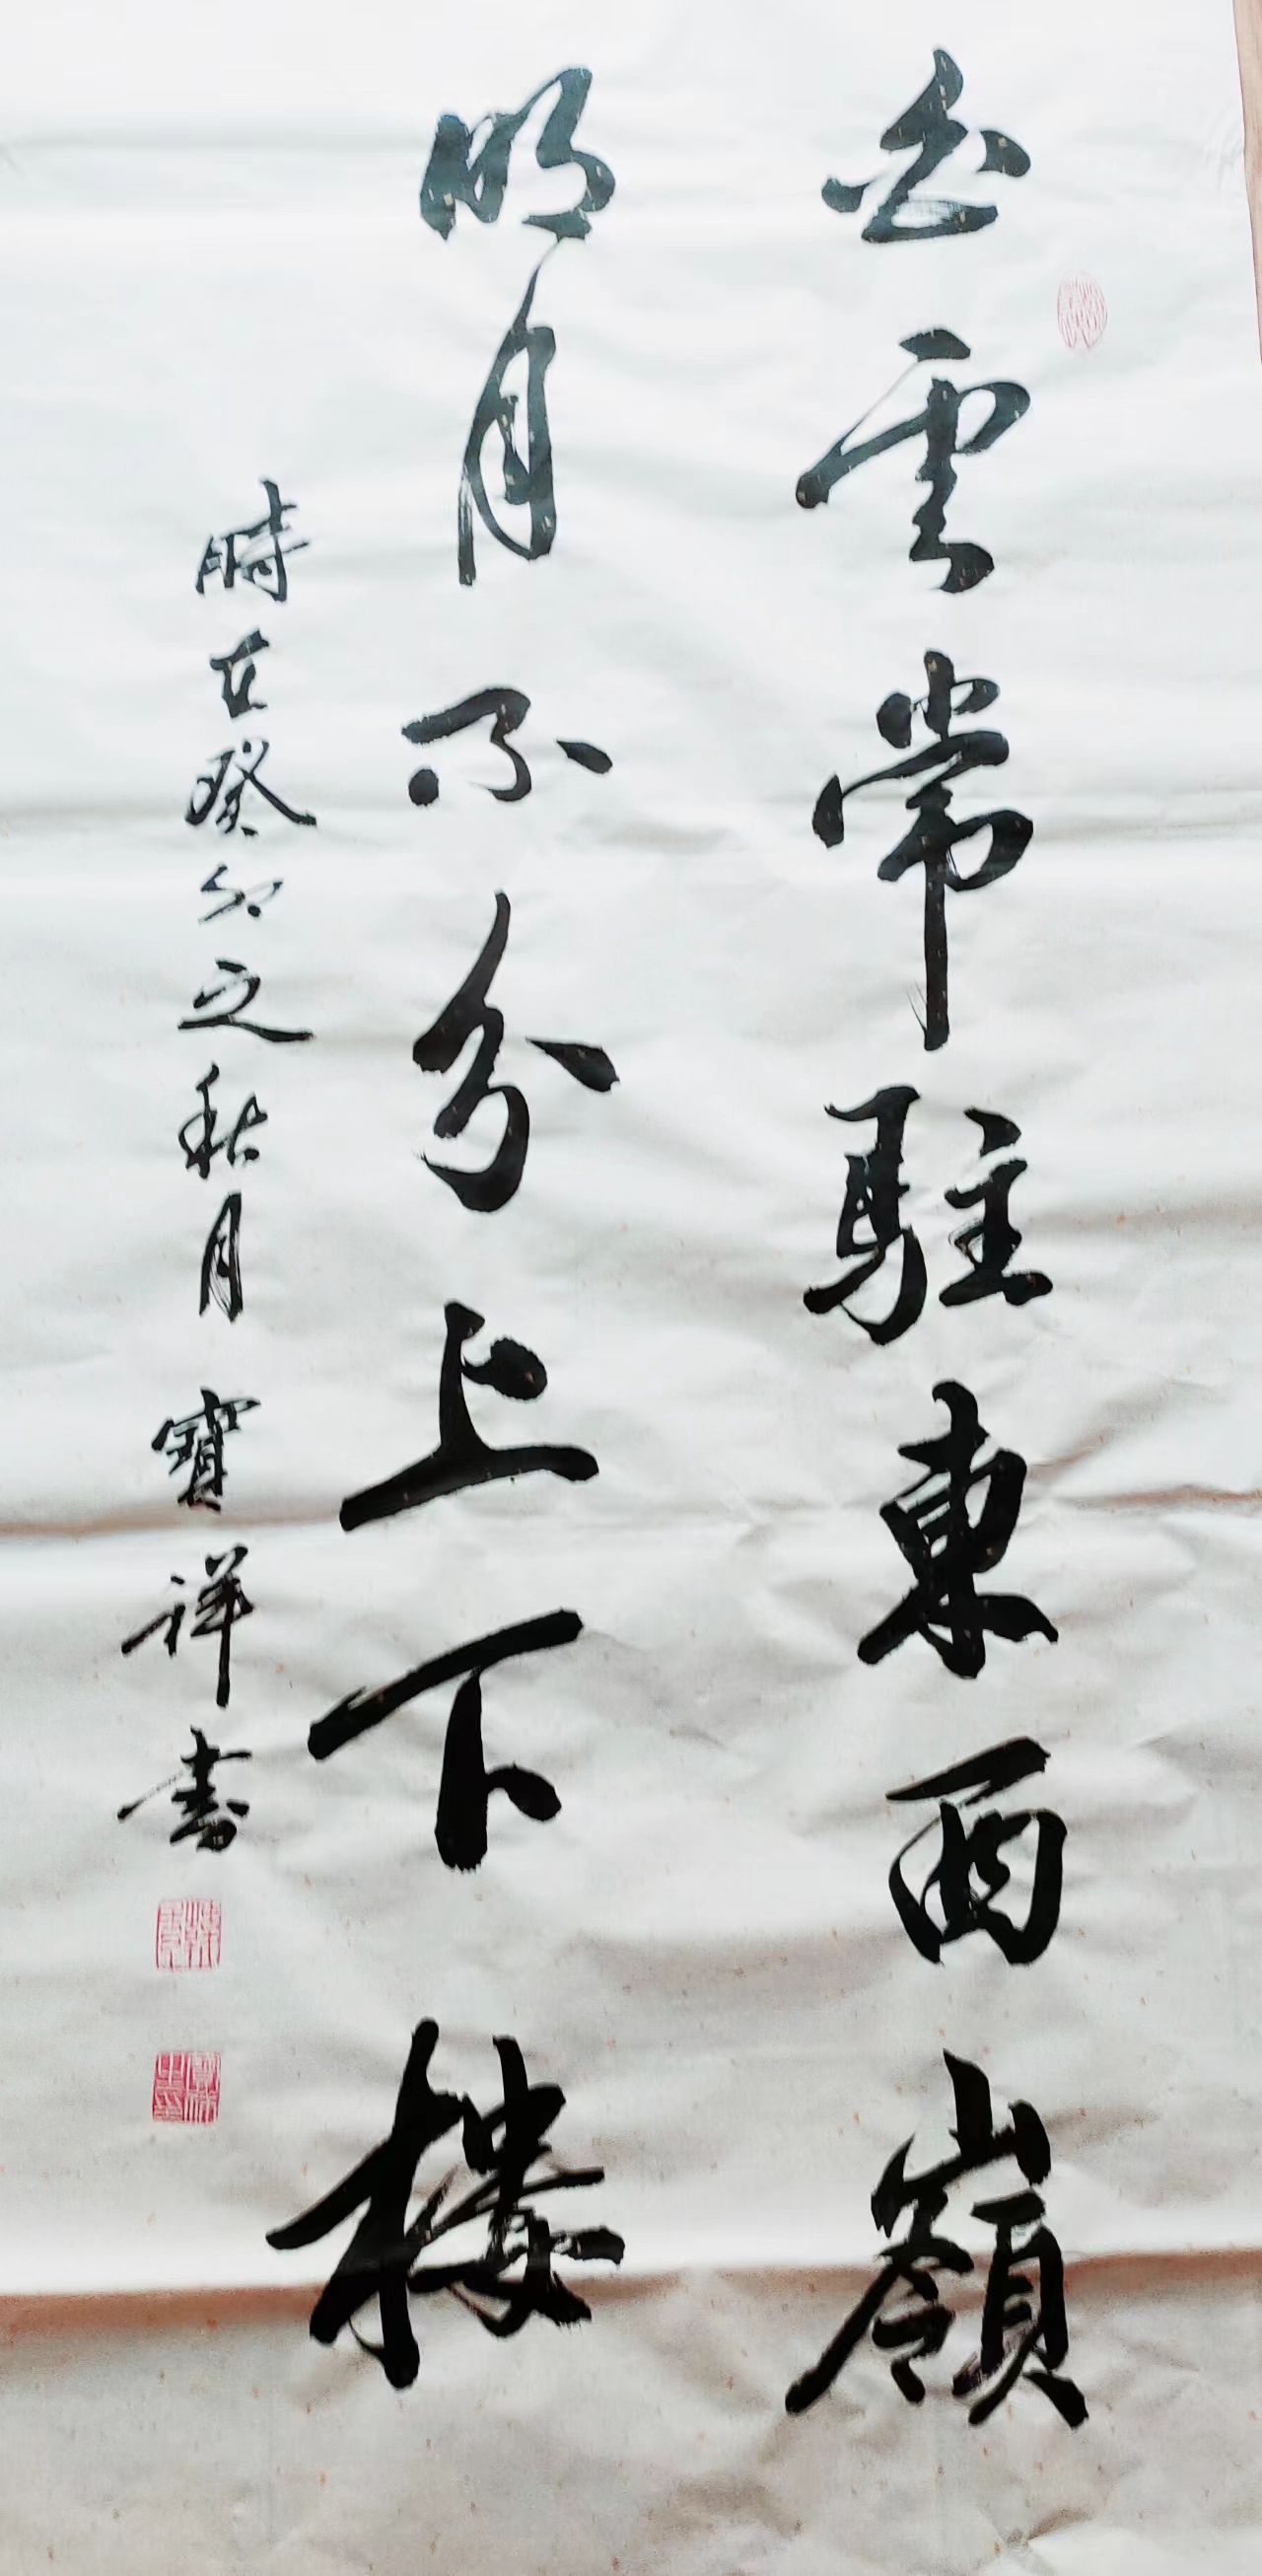 白雲常駐東西嶺
明月不分上下樓
時在癸卯之秋月 寶祥書